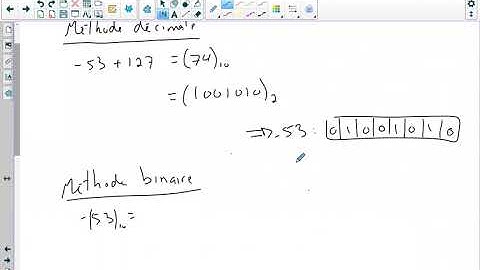 Méthode décimale
-53 + 127 = (74)10
= (1001010)2
=> -53 : 0 1 0 0 1 0 1 0
Méthode binaire
-(53)10 =